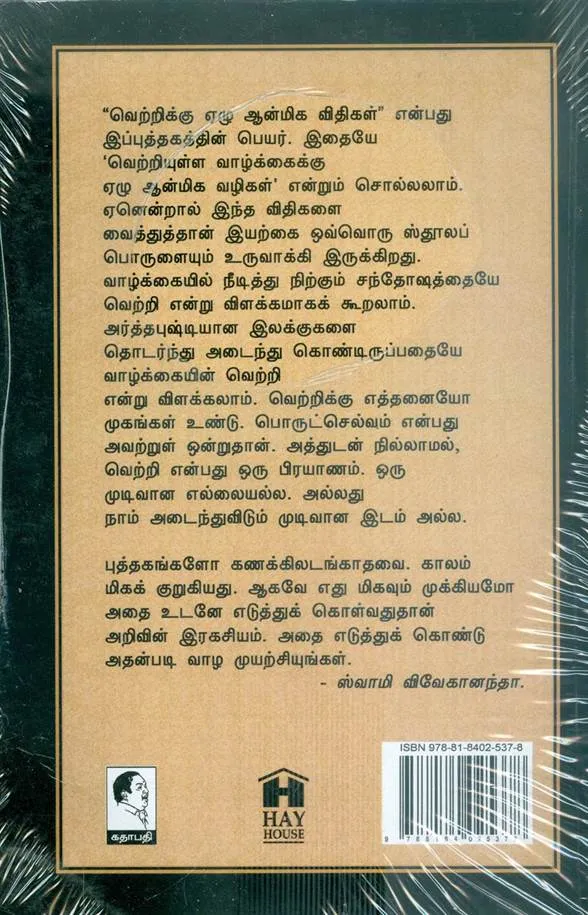 “வெற்றிக்கு ஏழு ஆன்மிக விதிகள்” என்பது
இப்புத்தகத்தின் பெயர். இதையே
‘வெற்றியுள்ள வாழ்க்கைக்கு
ஏழு ஆன்மிக வழிகள்’ என்றும் சொல்லலாம்.
ஏனென்றால் இந்த விதிகளை
வைத்துத்தான் இயற்கை ஒவ்வொரு ஸ்தூலப்
பொருளையும் உருவாக்கி இருக்கிறது.
வாழ்க்கையில் நீடித்து நிற்கும் சந்தோஷத்தையே
வெற்றி என்று விளக்கமாகக் கூறலாம்.
அர்த்தபுஷ்டியான இலக்குகளை
தொடர்ந்து அடைந்து கொண்டிருப்பதையே
வாழ்க்கையின் வெற்றி
என்று விளக்கலாம். வெற்றிக்கு எத்தனையோ
முகங்கள் உண்டு. பொருட்செல்வும் என்பது
அவற்றுள் ஒன்றுதான். அத்துடன் நில்லாமல்,
வெற்றி என்பது ஒரு பிரயாணம். ஒரு
முடிவான எல்லையல்ல. அல்லது
நாம் அடைந்துவிடும் முடிவான இடம் அல்ல.
புத்தகங்களோ கணக்கிலடங்காதவை. காலம்
மிகக் குறுகியது. ஆகவே எது மிகவும் முக்கியமோ
அதை உடனே எடுத்துக் கொள்வதுதான்
அறிவின் இரகசியம். அதை எடுத்துக் கொண்டு
அதன்படி வாழ முயற்சியுங்கள்.
- ஸ்வாமி விவேகானந்தா.
ISBN 978-81-8402-537-8
கதாபதி
HAY
HOUSE